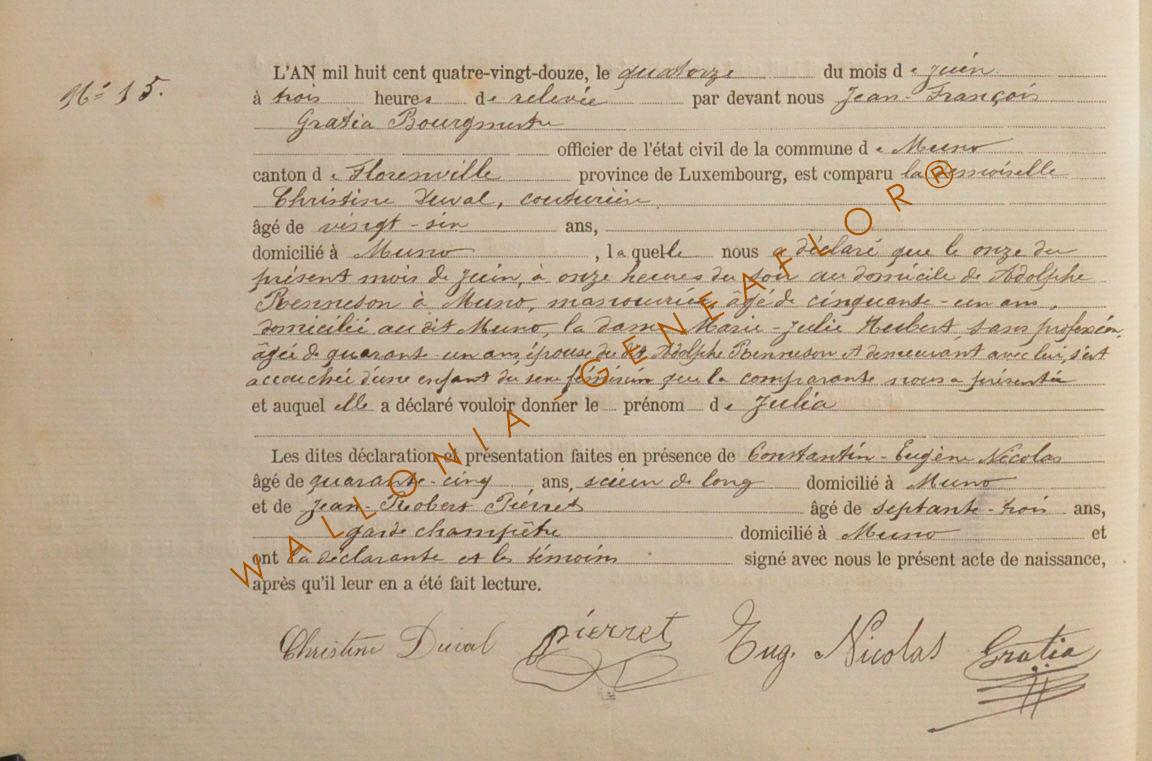 N° 15.
L'AN mil huit cent quatre-vingt-douze, le quatorze du mois de juin
à trois heures de relevée par devant nous Jean-François
Gratia Bourgmestre
officier de l'état civil de la commune de Muno
canton de Florenville province de Luxembourg, est comparu la demoiselle
Christine Duval, couturière,
âgé de vingt-six ans,
domicilié à Muno, laquelle nous a déclaré que le onze du
présent mois de juin, à onze heures du soir au domicile de Adolphe
Renneson à Muno, manouvrier, âgé de cinquante-un ans,
domicilié au dit Muno, la dame Marie-Julie Hubert, sans profession,
âgée de quarante-un ans, épouse du dit Adolphe Renneson et demeurant avec lui, s'est
accouchée d'une enfant du sexe féminin que la comparante nous a présentée
et auquel elle a déclaré vouloir donner le prénom de Julia
Les dites déclaration et présentation faites en présence de Constantin-Eugène Nicolas
âgé de quarante-cinq ans, scieur de long domicilié à Muno
et de Jean-Robert Pierret âgé de septante-trois ans,
garde champêtre domicilié à Muno et
ont la déclarante et les témoins signé avec nous le présent acte de naissance,
après qu'il leur en a été fait lecture.
Christine Duval Pierret Eug. Nicolas Gratia
WALLONIA-GENEAFLOR®